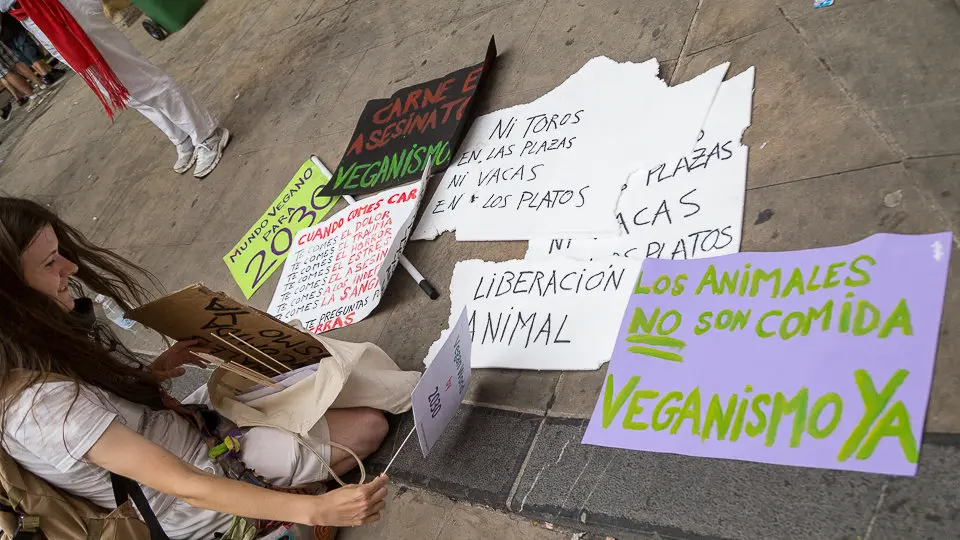 CARNE E
ASESINATO
VEGANISMO
MUNDO VEGANO
PARA
2030
CUANDO COMES CAR
TE COMES EL DOLOR
TE COMES EL TRAUMA
TE COMES EL HORROR
TE COMES EL ESTRES
TE COMES A LOS
TE COMES LA SANG
TE PREGUNTAS
NI TOROS
EN LAS PLAZAS
NI VACAS
EN LOS PLATOS
PLAZAS
ACAS
PLATOS
LIBERACIÓN
ANIMAL
LOS ANIMALES
NO SON COMIDA
VEGANISMO YA
2030
YA